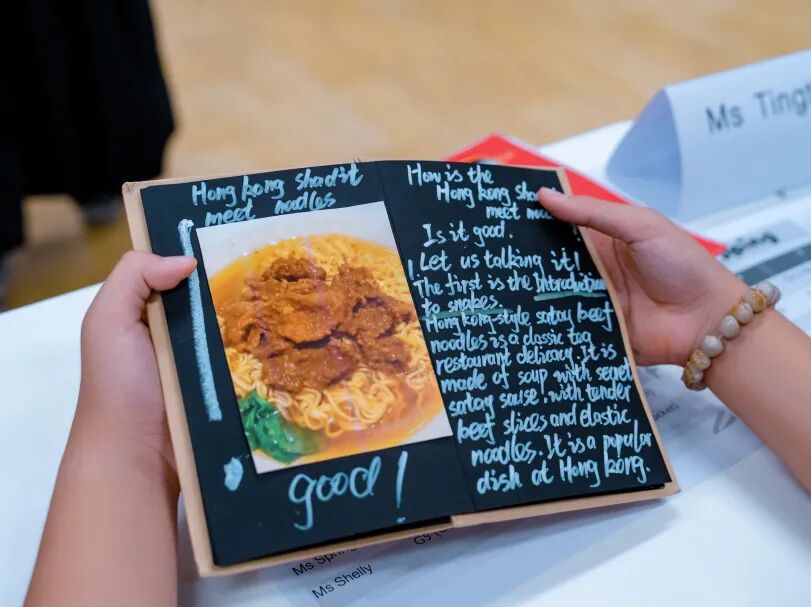 Hong kong shad't
meet noodles
good!
How is the
Hong kong
meet
Is it good.
! Let us talking it!
The first is the Introduction
to snakes.
Hong kong-style satay beef
noodles is a classic tea
restaurant delicacy. It is
made of soup with secret
satay sause! with tender
beef slices and elastic
noodles. It is a popular
dish at Hong kong.
Ms
Ms Shelly
G9